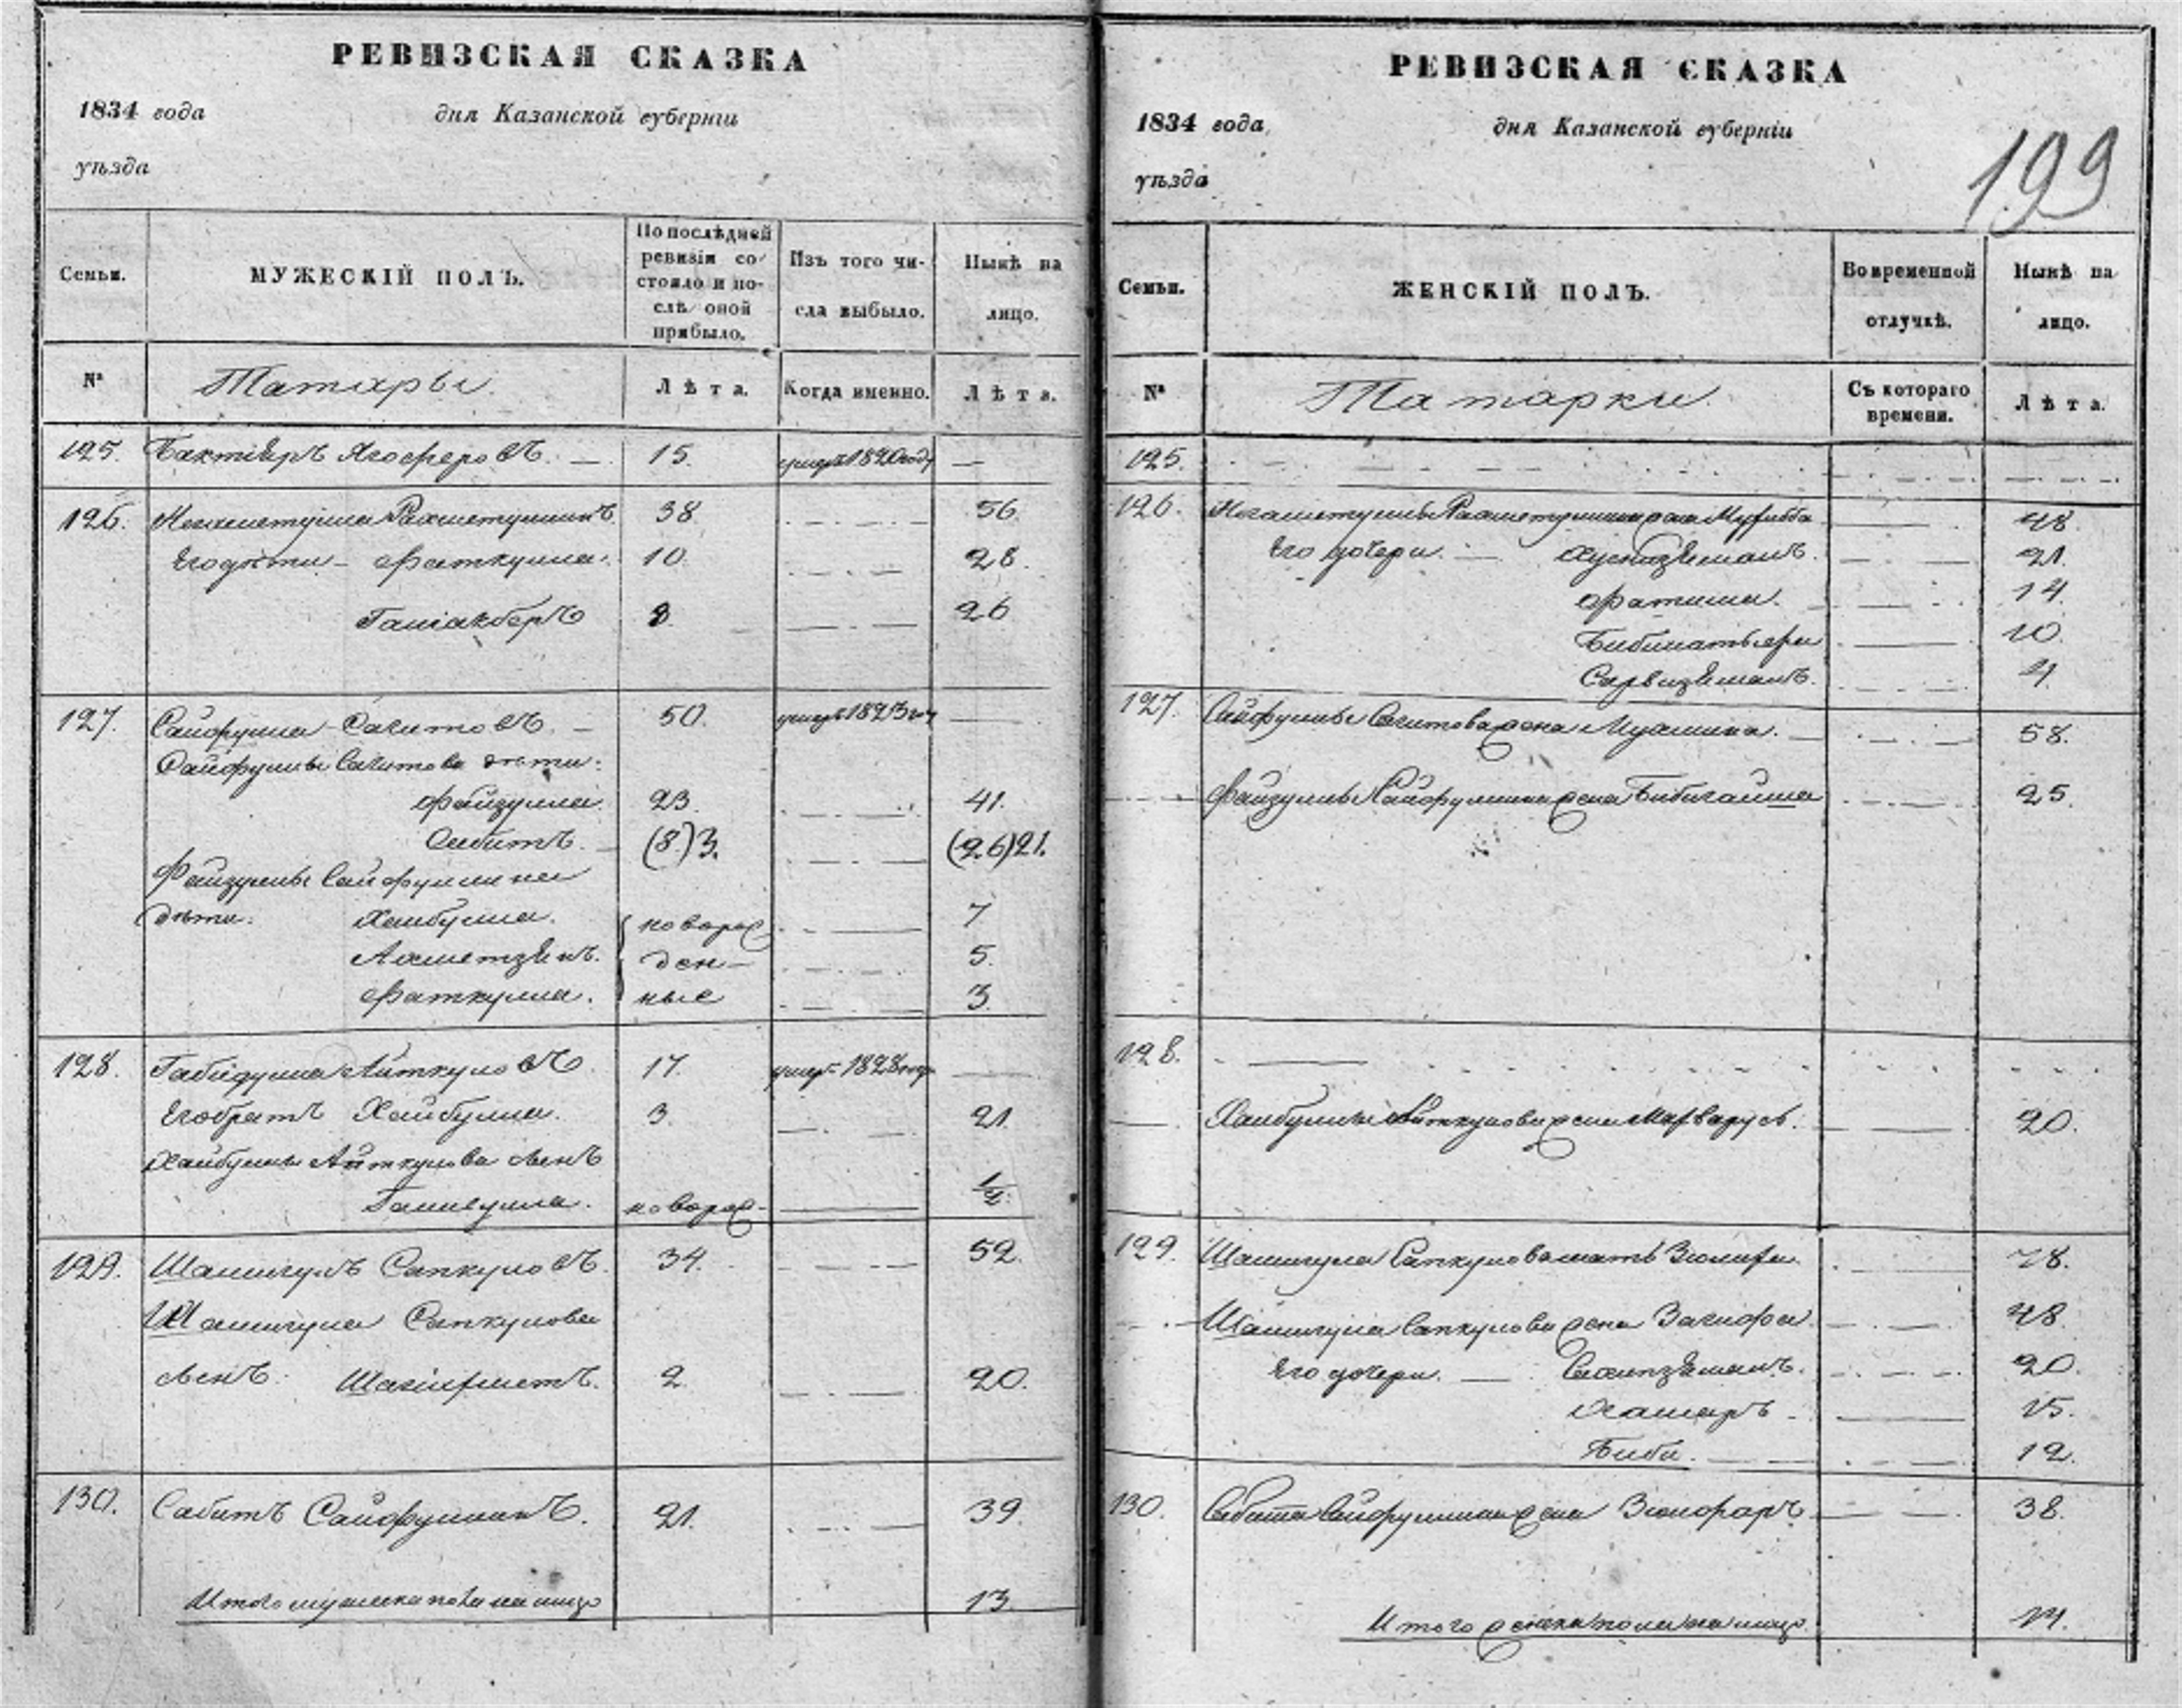 РЕВИЗСКАЯ СКАЗКА
1834 года дня Казанской губерніи
уѣзда
Семьи. МУЖЕСКІЙ ПОЛЪ. По послѣдней ревизіи состояло и послѣ оной прибыло. Изъ того числа выбыло. Нынѣ на лицо.
№ Татары. Лѣта. Когда именно. Лѣта.
125. Бактіяръ Ягоферовъ. 15. умеръ 1820 году —
126. Рахметуллинъ 38 56.
Его дѣти – Фаткулла. 10. 28.
Галіакберъ 8. 26
127. Сайфулла Сагитовъ. 50. умеръ 1823 году —
Сайфуллы Сагитова дѣти:
Файзулла. 23. 41.
Сабитъ. (8.)3. (26)21.
Файзуллы Сайфуллина
дѣти: Хайбулла. новорож 7
Ахметзянъ. ден— 5.
Фаткулла. ные 3.
128. Габидулла Аиткуловъ. 17. умеръ 1828 году —
Его братъ Хайбулла. 3. 21.
Хайбуллы Аиткулова сынъ
новорож- 1/2.
129. Шамигулъ Сапкуловъ. 34. 52.
Шамигула Сапкулова
сынъ. Шагиахметъ. 2. 20.
130. Сабитъ Сайфуллинъ. 21. 39.
Итого мужеска пола на лицо 13
РЕВИЗСКАЯ СКАЗКА
1834 года дня Казанской губерніи
уѣзда
199
Семьи. ЖЕНСКІЙ ПОЛЪ. Во временной отлучкѣ. Нынѣ на лицо.
№ Татарки. Съ котораго времени. Лѣта.
125.
126. Рахметуллина жена 48.
Его дочери. — 21.
Фатима. 14.
10.
4.
127. Сайфуллы Сагитова жена 58.
Файзуллы Сайфуллина жена Бибигайша 25.
128. —
Хайбуллы Аиткулова жена 20.
129. Шамигула Сапкулова мать 78.
Шамигула Сапкулова жена 48.
Его дочери. — 20.
15.
Биби. 12.
130. Сабита Сайфуллина жена 38.
Итого женска пола на лицо. 14.